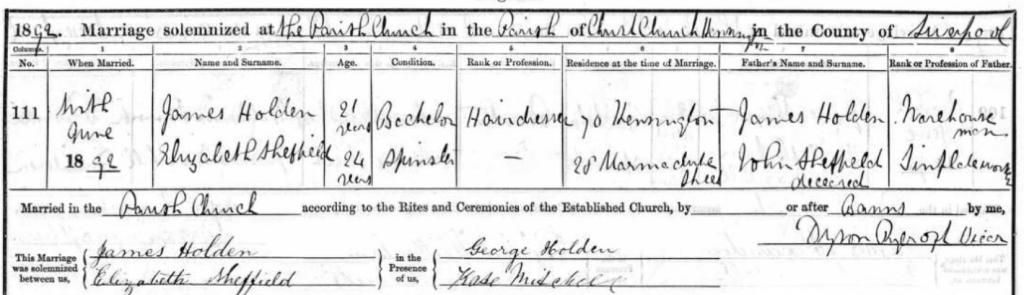 1892. Marriage solemnized at the Parish Church in the Parish of Christ Church Kensington in the County of Liverpool
Columns. 1 2 3 4 5 6 7 8
No. When Married. Name and Surname. Age. Condition. Rank or Profession. Residence at the time of Marriage. Father's Name and Surname. Rank or Profession of Father.
111 June 1892
James Holden 21 years Bachelor Hairdresser 70 Kensington James Holden Warehouse man
Elizabeth Sheffield 24 years Spinster — 28 Marmaduke Street John Sheffield deceased Tinplate worker
Married in the Parish Church according to the Rites and Ceremonies of the Established Church, by or after Banns by me,
Dyson Rycroft Vicar
This Marriage was solemnized between us, James Holden Elizabeth Sheffield in the Presence of us, George Holden Kate Mitchell